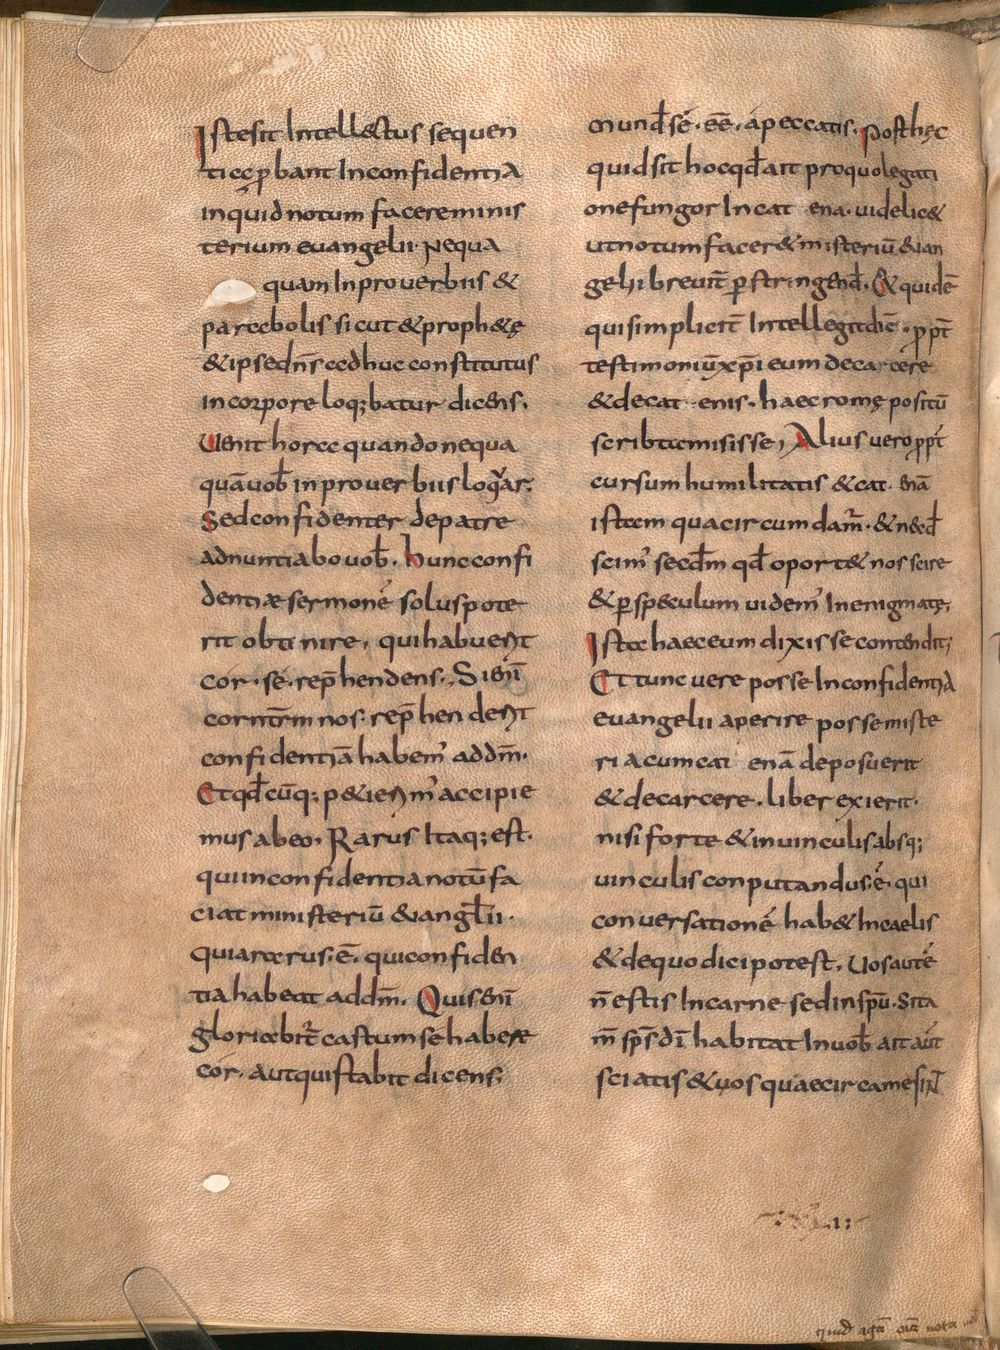 Iste sit Intellectus sequen
tia ꝓbant In confidentia
inquid notum facere minis
terium euangelii. Nequa
quam In prouerbiis &
parabolis sicut & proph&ę
& ipse dn̄s adhuc constitutus
in corpore loq;batur dicens.
Uenit hora quando nequa
quā uob̄ in prouerbiis loq̄ar.
Sed confidenter de patre
adnuntiabo uob̄. hunc confi
dentiæ sermonē solus pote
rit obtinire, qui habuerit
cór. sé. rep̄hendens., Si enī
cor nr̄m nos. rep̄henderit
confidentiā habem' ad dm̄.
Et qd̄cūq; p&ierim' accipie
mus ab eo, Rarus Itaq; est.
qui in confidentia notū fa
ciat ministeriū &iangl̄ii.
quia rarus. ē. qui confiden
tia habeat ad dm̄. Quis enī
gloriabit̄ castum sē habere
cór. aut quis stabit dicens;
mund̄ sé. eē. á peccatis. Post hęc
quid sit hoc qd̄ ait pro quo legati
one fungor In cat ena. uidelic&
ut notum facer& misteriū &ian
gelii breuit̄ ꝑstringend̄. Et quidē
qui simplicit̄ Intellegit diē. ꝓpt̄
testimoniū xp̄i eum de carcere
& de cat enis. haec romę positū
scribta misisse, Alius uero ꝓpt̄
cursum humilitatis & cat. enā
istam qua circumdam̄. & necd̄
scim' secd̄m qd̄ oport& nos scire
& ꝑ speculum uidem' In enigmatę,
Ista haec eum dixisse contendit;
Et tunc uere posse In confidentia
euangelii aperire posse miste
ria cum cat enā deposuerit
& de carcere. liber exierit.
nisi forte & in uinculis absq;
uinculis conputandus. ē. qui
conuersationē hab& In caelis
& de quo dici potest. Uos autē
n̄ estis In carne sed in spū. Si ta
m̄ sps̄ dī habitat In uob̄ ait aūt
sciatis & uos quae circa me sint
quid agā